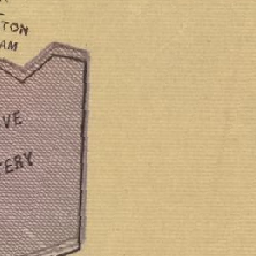 TON
AM
VE
TERY